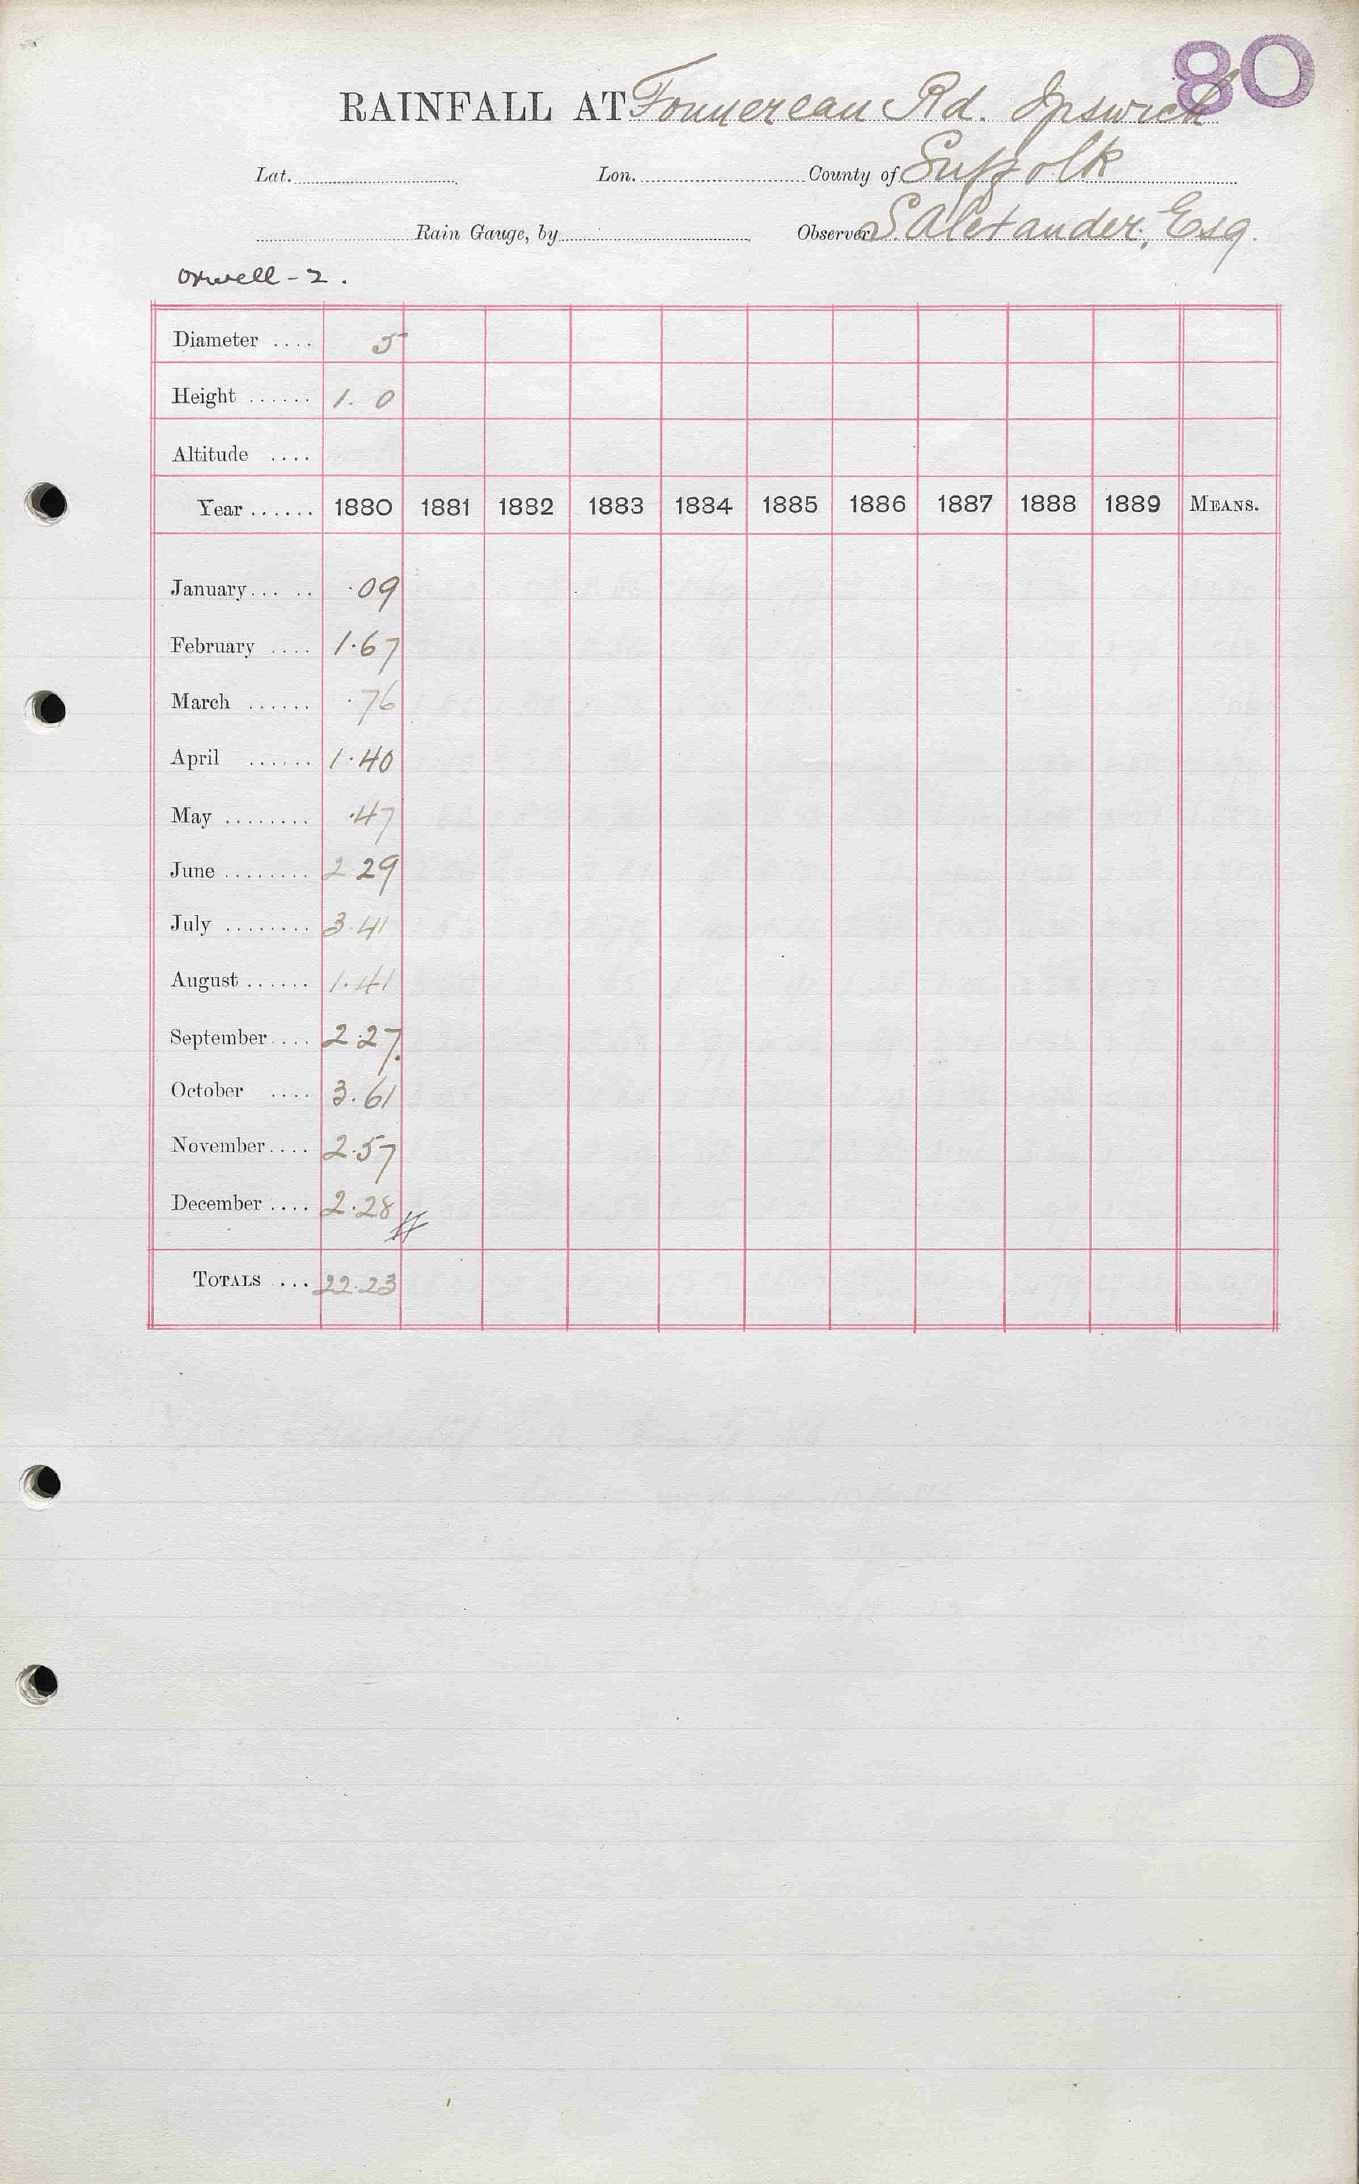 80
RAINFALL AT Fonnereau Rd. Ipswich
Lat. Lon. County of Suffolk
Rain Gauge, by Observer S. Alexander, Esq.
Orwell - 2.
Diameter .... 5
Height ...... 1. 0
Altitude ....
Year ...... 1880 1881 1882 1883 1884 1885 1886 1887 1888 1889 MEANS.
January... .. .09
February .... 1.67
March ...... .76
April ...... 1.40
May ........ .47
June ........ 2.29
July ........ 3.41
August ...... 1.41
September.... 2.27
October .... 3.61
November.... 2.57
December .... 2.28
TOTALS ... 22.23